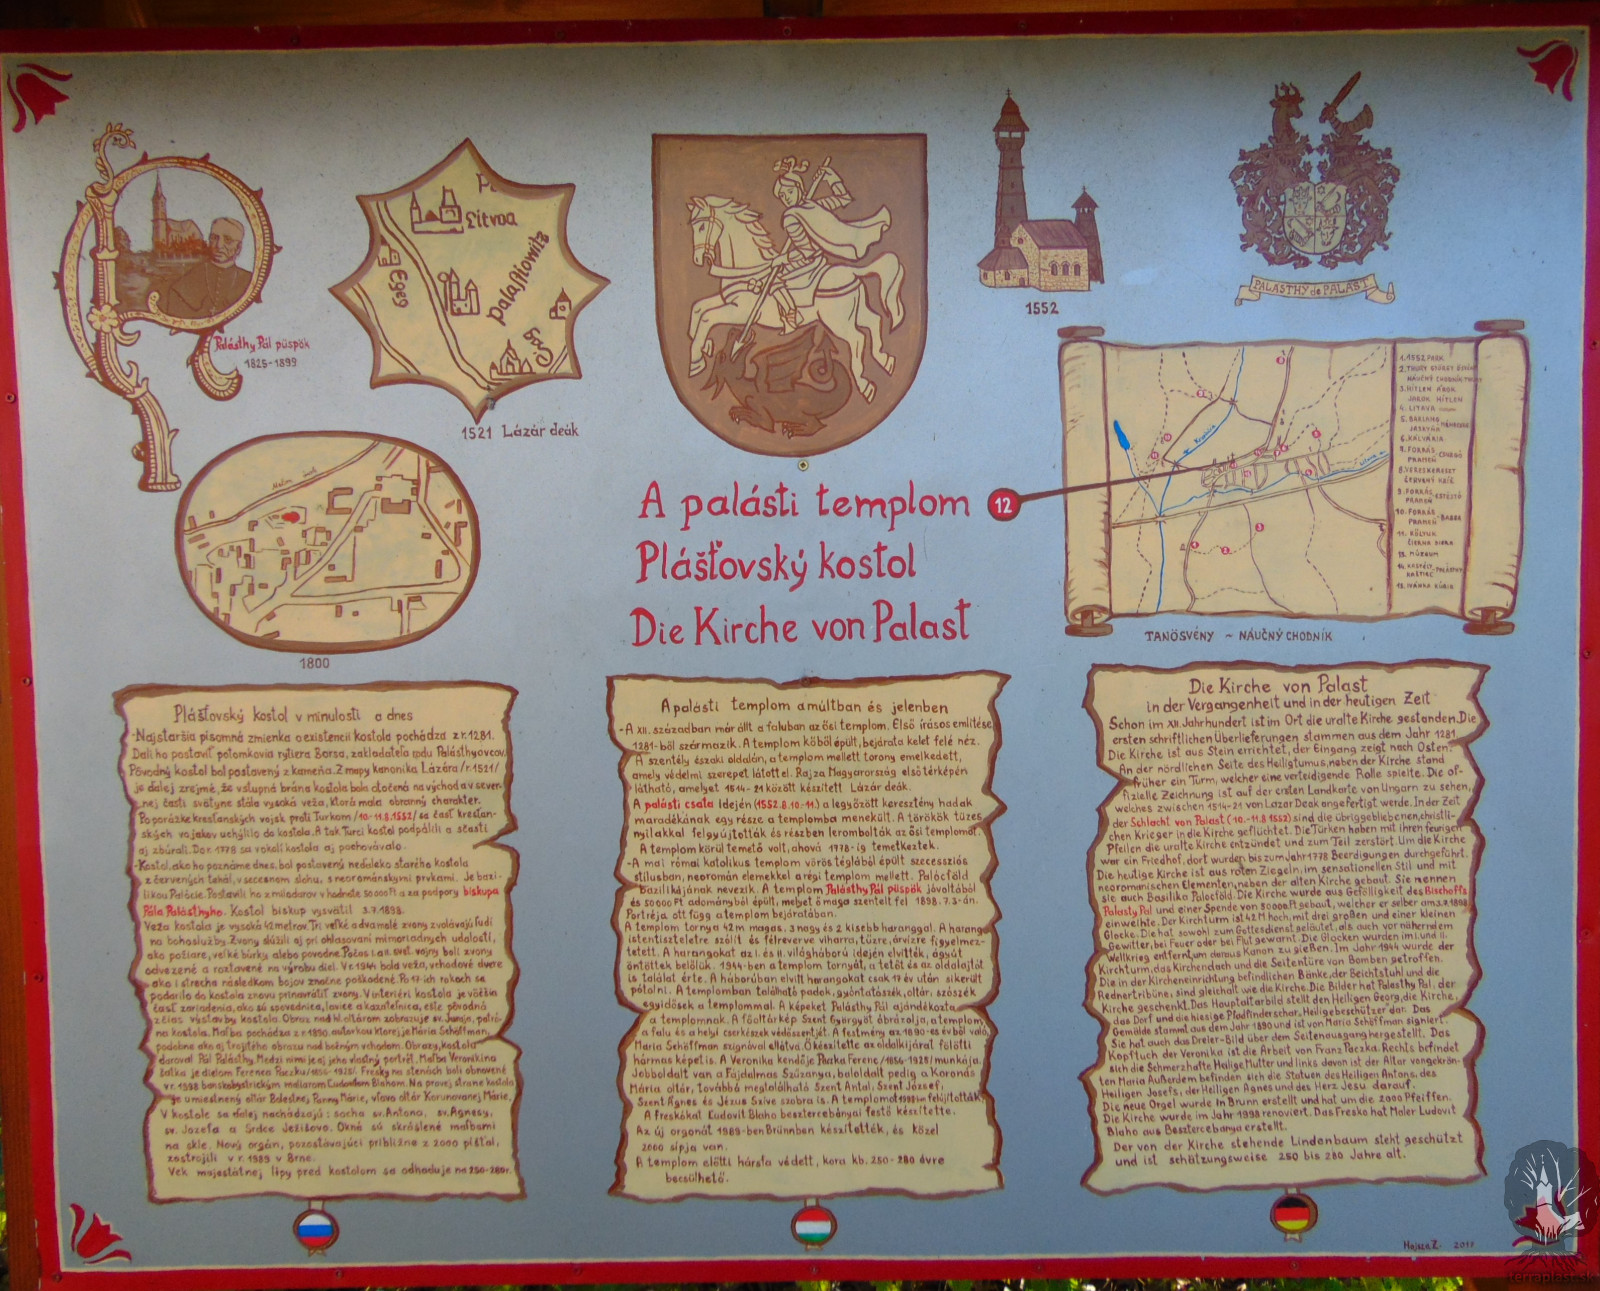 Palásthy Pál püspök
1825-1899
Litvaa
Egeg
palastowitz
1521 Lázár deák
1552
PALASTHY de PALÁST
1800
A palásti templom 12
Plášťovský kostol
Die Kirche von Palast
1. 1552 PARK
4. LITAVA
6. KÁLVÁRIA
TANÖSVÉNY ~ NÁUČNÝ CHODNÍK
Plášťovský kostol v minulosti a dnes
-Najstaršia písomná zmienka o existencii kostola pochádza z r. 1281.
Dali ho postaviť potomkovia rytiera Borsa, zakladateľa rodu Palásthyovcov.
Pôvodný kostol bol postavený z kameňa. Z mapy kanonika Lázára /r. 1521/
je ďalej zrejmé, že vstupná brána kostola bola otočená na východ a v sever-
nej časti svätyne stála vysoká veža, ktorá mala obranný charakter.
Po porážke kresťanských vojsk proti Turkom /10.-11.8.1552/ sa časť kresťan-
ských vojakov uchýlilo do kostola. A tak Turci kostol podpálili a sčasti
aj zbúrali. Do r. 1778 sa v okolí kostola aj pochovávalo.
-Kostol, ako ho poznáme dnes, bol postavený neďaleko starého kostola
z červených tehál, v secesnom slohu, s neorománskymi prvkami. Je bazi-
likou Palócie. Postavili ho z milodarov v hodnote 50000 Ft a za podpory biskupa
Pála Palásthyho. Kostol biskup vysvätil 3.7.1898.
Veža kostola je vysoká 42 metrov. Tri veľké a dva malé zvony zvolávajú ľudí
na bohoslužby. Zvony slúžili aj pri ohlasovaní mimoriadnych udalostí,
ako požiare, veľké búrky alebo povodne. Počas I. a II. svet. vojny boli zvony
odvezené a roztavené na výrobu diel. V r. 1944 bola veža, vchodové dvere
ako i strecha následkom bojov značne poškodené. Po 17-ich rokoch sa
podarilo do kostola znovu prinavrátiť zvony. V interiéri kostola je väčšia
časť zariadenia, ako sú spovednica, lavice a kazateľnica, ešte pôvodná
z čias výstavby kostola. Obraz nad hl. oltárom zobrazuje sv. Juraja, patró-
na kostola. Maľba pochádza z r. 1890, autorkou ktorej je Mária Schöffman,
podobne ako aj trojitého obrazu nad bočným vchodom. Obrazy, kostolu
daroval Pál Palásthy. Medzi nimi je aj jeho vlastný portrét. Maľba Veronikina
šatka je dielom Ferenca Paczku /1856-1925/. Fresky na stenách boli obnovené
v r. 1998 banskobystrickým maliarom Ľudovítom Blahom. Na pravej strane kostola
je umiestnený oltár Bolestnej Panny Márie, vľavo oltár Korunovanej Márie.
V kostole sa ďalej nachádzajú: socha sv. Antona, sv. Agnesy,
sv. Jozefa a Srdce Ježišovo. Okná sú skrášlené maľbami
na skle. Nový orgán, pozostávajúci približne z 2000 píšťal,
zostrojili v r. 1989 v Brne.
Vek majestátnej lipy pred kostolom sa odhaduje na 250-280 r.
A palásti templom a múltban és jelenben
-A XII. században már állt a faluban az ősi templom. Első írásos említése
1281-ből származik. A templom kőből épült, bejárata kelet felé néz.
A szentély északi oldalán, a templom mellett torony emelkedett,
amely védelmi szerepet látott el. Rajza Magyarország első térképén
látható, amelyet 1514-21 között készített Lázár deák.
A palásti csata idején (1552.8.10-11.) a legyőzött keresztény hadak
maradékának egy része a templomba menekült. A törökök tüzes
nyilakkal felgyújtották és részben lerombolták az ősi templomot.
A templom körül temető volt, ahová 1778-ig temetkeztek.
-A mai római katolikus templom vörös téglából épült szecessziós
stílusban, neoromán elemekkel a régi templom mellett. Palócföld
bazilikájának nevezik. A templom Palásthy Pál püspök jóvoltából
és 50000 Ft adományból épült, melyet ő maga szentelt fel 1898.7.3-án.
Portréja ott függ a templom bejáratában.
A templom tornya 42 m magas. 3 nagy és 2 kisebb haranggal. A harang
istentiszteletre szólít és félreverve viharra, tűzre, árvízre figyelmez-
tetett. A harangokat az I. és II. világháború idején elvitték, ágyút
öntöttek belőlük. 1944-ben a templom tornyát, a tetőt és az oldalajtót
is találat érte. A háborúban elvitt harangokat csak 17 év után sikerült
pótolni. A templomban található padok, gyóntatószék, oltár, szószék
egyidősek a templommal. A képeket Palásthy Pál ajándékozta
a templomnak. A főoltárkép Szent Györgyöt ábrázolja, a templom,
a falu és a helyi cserkészek védőszentjét. A festmény az 1890-es évből való,
Maria Schöffman szignóval ellátva. Ő készítette az oldalkijárat fölötti
hármas képet is. A Veronika kendője Paczka Ferenc /1856-1925/ munkája.
Jobboldalt van a Fájdalmas Szűzanya, baloldalt pedig a Koronás
Mária oltár, továbbá megtalálható Szent Antal, Szent József,
Szent Ágnes és Jézus Szíve szobra is. A templomot 1998-ban felújították.
A freskókat Ľudovit Blaho besztercebányai festő készítette.
Az új orgonát 1989-ben Brünnben készítették, és közel
2000 sípja van.
A templom előtti hársfa védett, kora kb. 250-280 évre
becsülhető.
Die Kirche von Palast
in der Vergangenheit und in der heutigen Zeit
Schon im XII. Jahrhundert ist im Ort die uralte Kirche gestanden. Die
ersten schriftlichen Überlieferungen stammen aus dem Jahr 1281.
Die Kirche ist aus Stein errichtet, der Eingang zeigt nach Osten.
An der nördlichen Seite des Heiligtumus, neben der Kirche stand
früher ein Turm, welcher eine verteidigende Rolle spielte. Die of-
fizielle Zeichnung ist auf der ersten Landkarte von Ungarn zu sehen,
welches zwischen 1514-21 von Lazar Deak angefertigt werde. In der Zeit
der Schlacht von Palast (10.-11.8 1552) sind die übriggebliebenen, christli-
chen Krieger in die Kirche geflüchtet. Die Türken haben mit ihren feurigen
Pfeilen die uralte Kirche entzündet und zum Teil zerstört. Um die Kirche
war ein Friedhof, dort wurden bis zum Jahr 1778 Beerdigungen durchgeführt.
Die heutige Kirche ist aus roten Ziegeln, im sensationellen Stil und mit
neoromanischen Elementen, neben der alten Kirche gebaut. Sie nennen
sie auch Basilika Palocföld. Die Kirche wurde aus Gefälligkeit des Bischoffs
Palasty Pal und einer Spende von 50000 Ft gebaut, welcher er selber am 3.7.1898
einweihte. Der Kirchturm ist 42 M hoch, mit drei großen und einer kleinen
Glocke. Die hat sowohl zum Gottesdienst geläutet, als auch vor näherndem
Gewitter, bei Feuer oder bei Flut gewarnt. Die Glocken wurden im I. und II.
Weltkrieg entfernt, um daraus Kanon zu gießen. Im Jahr 1944 wurde der
Kirchturm, das Kirchendach und die Seitentüre von Bomben getroffen.
Die in der Kircheneinrichtung befindlichen Bänke, der Beichtstuhl und die
Rednertribüne, sind gleichalt wie die Kirche. Die Bilder hat Palasthy Pal, der
Kirche geschenkt. Das Hauptaltarbild stellt den Heiligen Georg, die Kirche,
das Dorf und die hiesige Pfadfinderschar, Heiligebeschützer dar. Das
Gemälde stammt aus dem Jahr 1890 und ist von Maria Schöffman signiert.
Sie hat auch das Dreier-Bild über dem Seitenausgang hergestellt. Das
Kopftuch der Veronika ist die Arbeit von Franz Paczka. Rechts befindet
sich die Schmerzhafte Halige Mutter und links davon ist der Altar von gekrön-
ten Maria. Außerdem befinden sich die Statuen des Heiligen Antons, des
Heiligen Josefs, der Heiligen Agnes und des Herz Jesu darauf.
Die neue Orgel wurde in Brunn erstellt und hat um die 2000 Pfeiffen.
Die Kirche wurde im Jahr 1998 renoviert. Das Fresko hat Maler Ludovit
Blaho aus Besztercebanya erstellt.
Der von der Kirche stehende Lindenbaum steht geschützt
und ist schätzungsweise 250 bis 280 Jahre alt.
2017
terraplast.sk